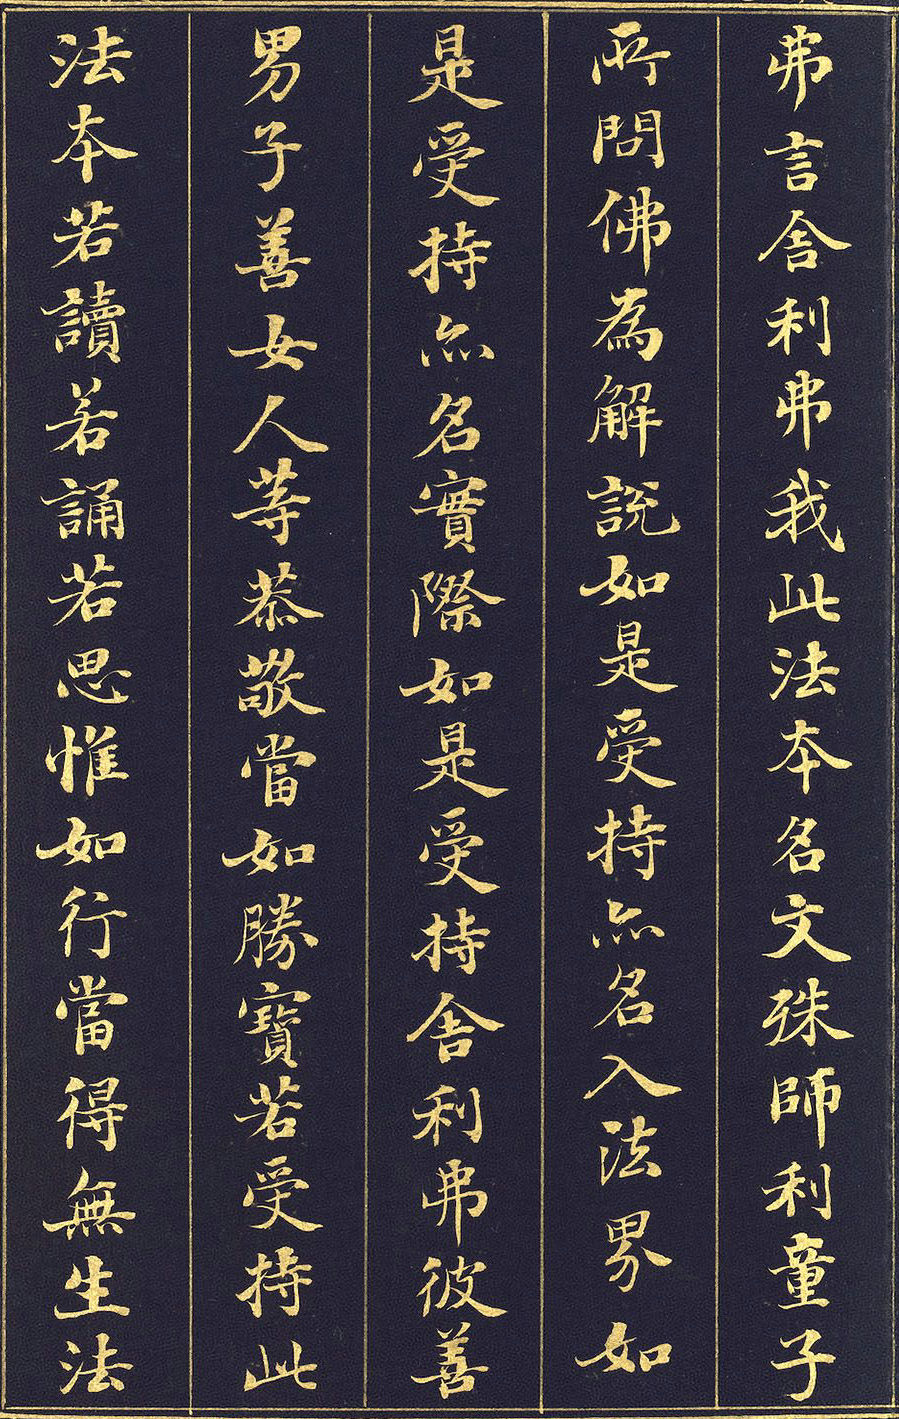 弗言舎利弗我此法本名文殊師利童子
所問佛為解說如是受持亦名入法界如
是受持亦名實際如是受持舎利弗彼善
男子善女人等恭敬當如勝寶若受持此
法本若讀若誦若思惟如行當得無生法